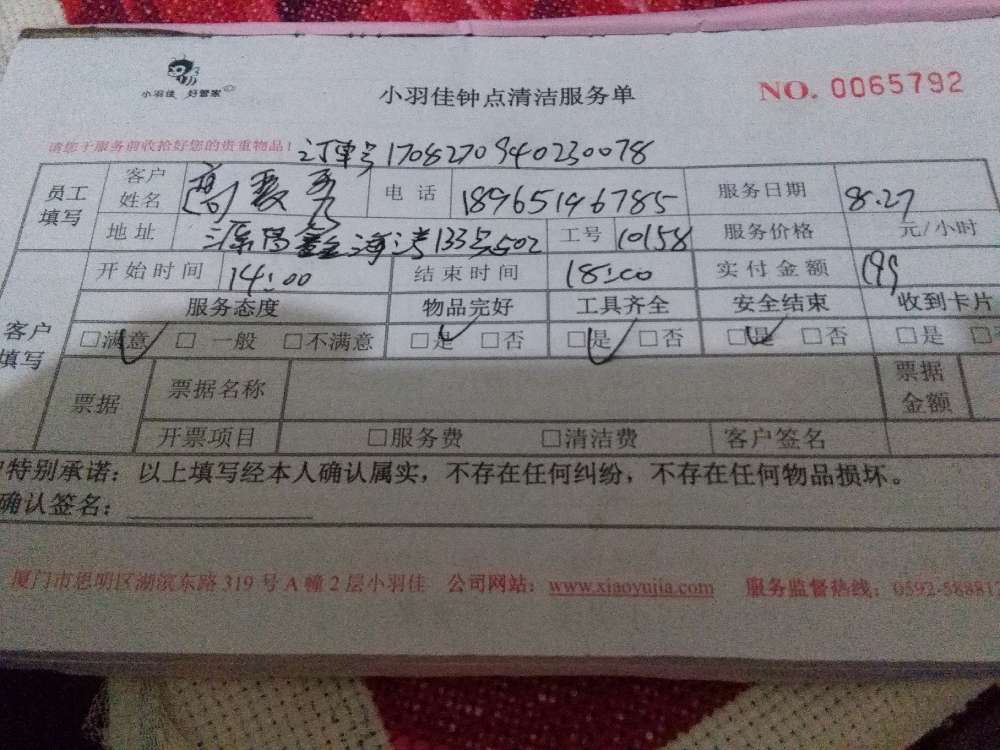 小羽佳 好管家
小羽佳钟点清洁服务单
NO. 0065792
请您于服务前收拾好您的贵重物品！ 订单号 1708270940230078
员工填写 客户姓名 电话 18965146785 服务日期 8.27
地址 133号502 工号 10158 服务价格 元/小时
客户填写 开始时间 14:00 结束时间 18:00 实付金额 199
服务态度 物品完好 工具齐全 安全结束 收到卡片
□满意 □一般 □不满意 □是 □否 □是 □否 □是 □否 □是 □
票据 票据名称 票据金额
开票项目 □服务费 □清洁费 客户签名
特别承诺：以上填写经本人确认属实，不存在任何纠纷，不存在任何物品损坏。
确认签名：
厦门市思明区湖滨东路319号A幢2层小羽佳 公司网站：www.xiaoyujia.com 服务监督热线：0592-58881